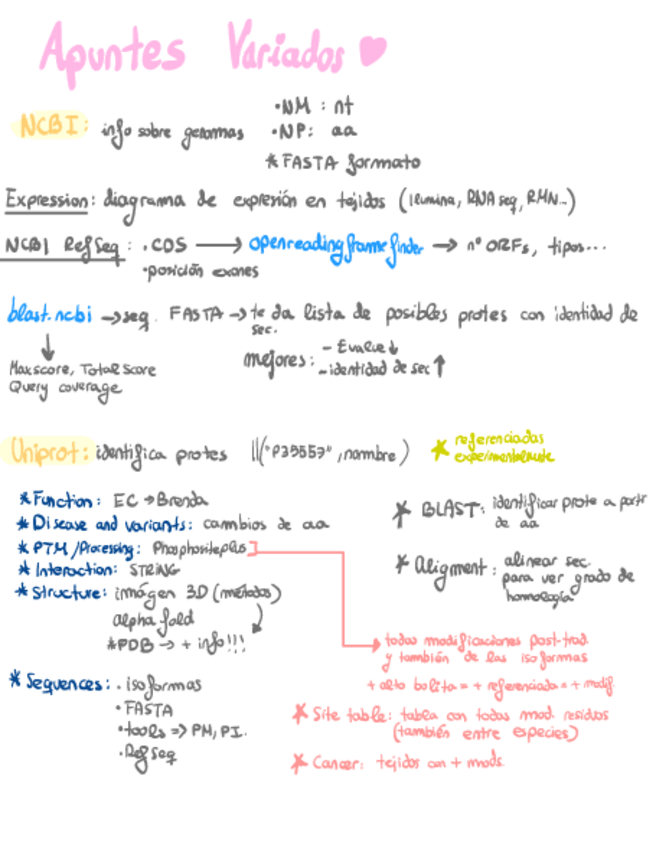 Apuntes Variados
NCBI: info sobre genomas
•NM : nt
•NP: aa
* FASTA formato
Expression: diagrama de expresión en tejidos (Ilumina, RNA seq, RMN...)
NCBI RefSeq: •CDS → openreadingframefinder → nº ORFs, tipos...
•posición exones
blast.ncbi → seq. FASTA → te da lista de posibles protes con identidad de
sec.
Maxscore, Total Score
Query coverage
mejores: - Evalue ↓
- identidad de sec ↑
Uniprot: identifica protes ("P35557", nombre)
* referenciadas
experimentalmente
* Function: EC → Brenda
* Disease and variants: cambios de aa
* PTM/Processing: Phosphositeplus
* Interaction: STRING
* Structure: imágen 3D (métodos)
alpha fold
*PDB → + info!!!
* Sequences: • isoformas
• FASTA
• tools => PM, PI.
• RefSeq
* BLAST: identificar prote a partir
de aa
* Aligment: alinear sec.
para ver grado de
homología
todas modificaciones post-trad
y también de las isoformas
+ alto bolita = + referenciada = + modif.
* Site table: tabla con todas mod. residuos
(también entre especies)
* Cancer: tejidos con + mods.